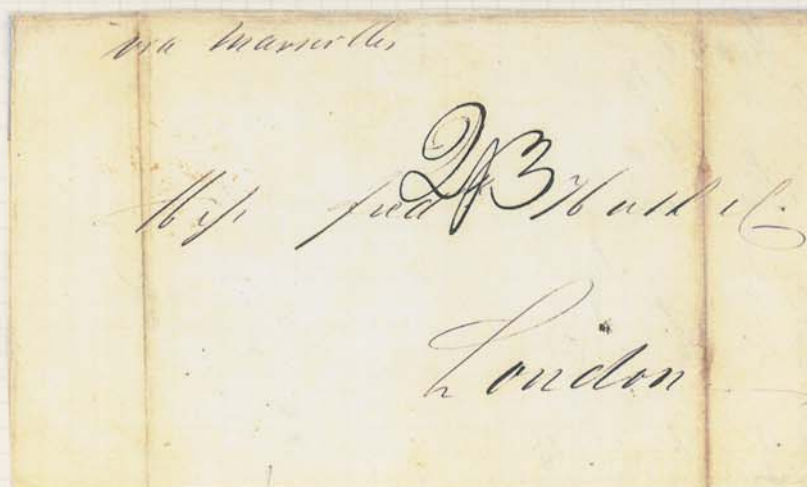 via Marseilles
2/3
Messrs Fredk Huth & Co
London